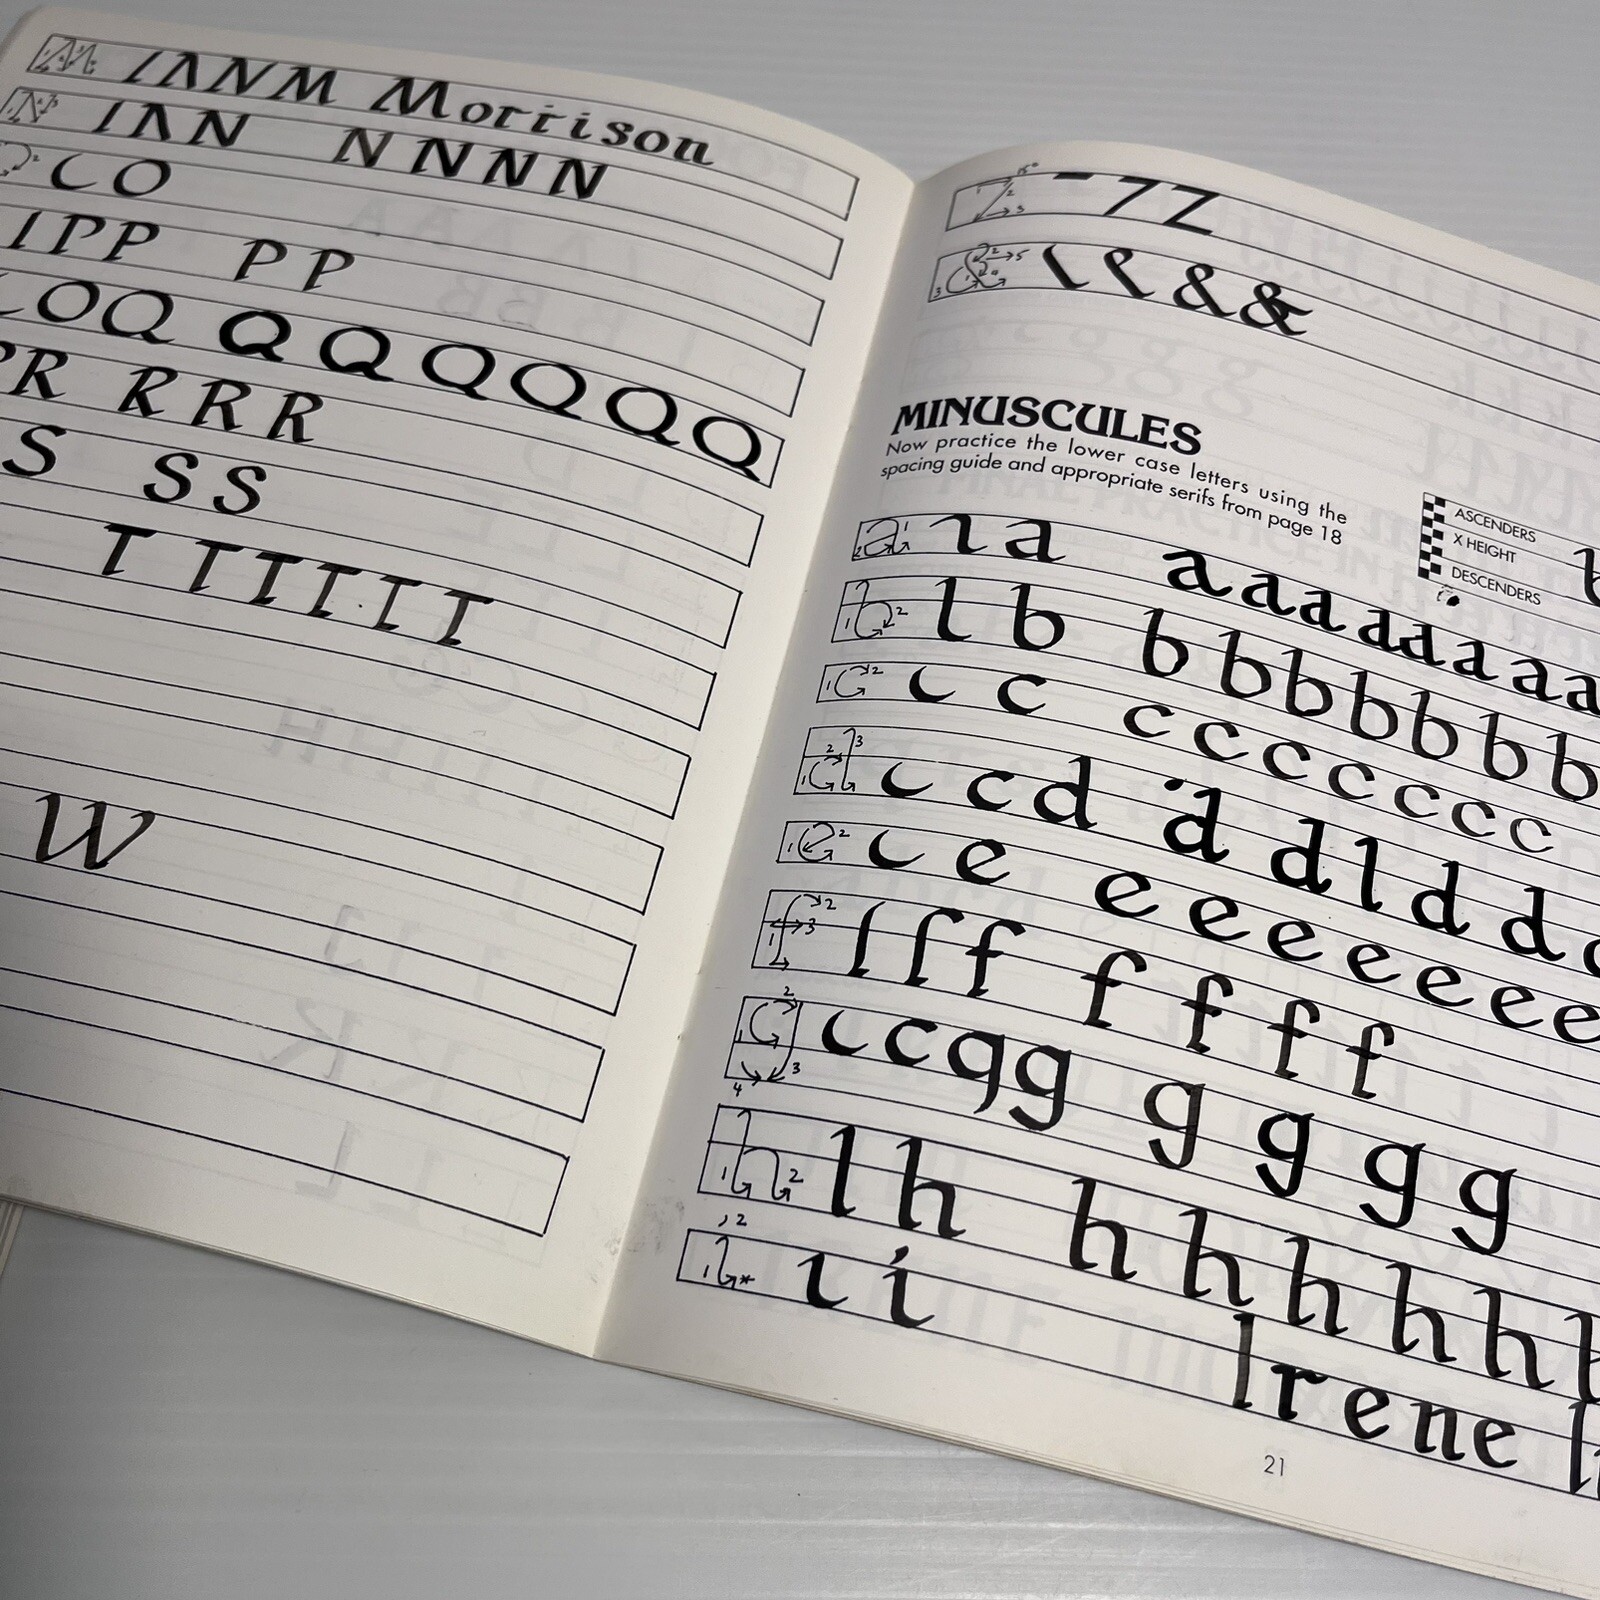 M I Λ N M Morrison
N I Λ N N N N N
C O
I P P P P
O Q Q Q Q Q Q Q
R R R R
S S S
T T T T T T
W
Z 7 Z
& &
MINUSCULES
Now practice the lower case letters using the
spacing guide and appropriate serifs from page 18
ASCENDERS
X HEIGHT
DESCENDERS
a ı a a a a a a a a a
b l b b b b b b b b
c c c c c c c c c c
d c c d d d l d d
e c e e e e e e e e
f l ſ f f f f f
g c c q g g g g g
h l h h h h h h
i ı i Irene
21